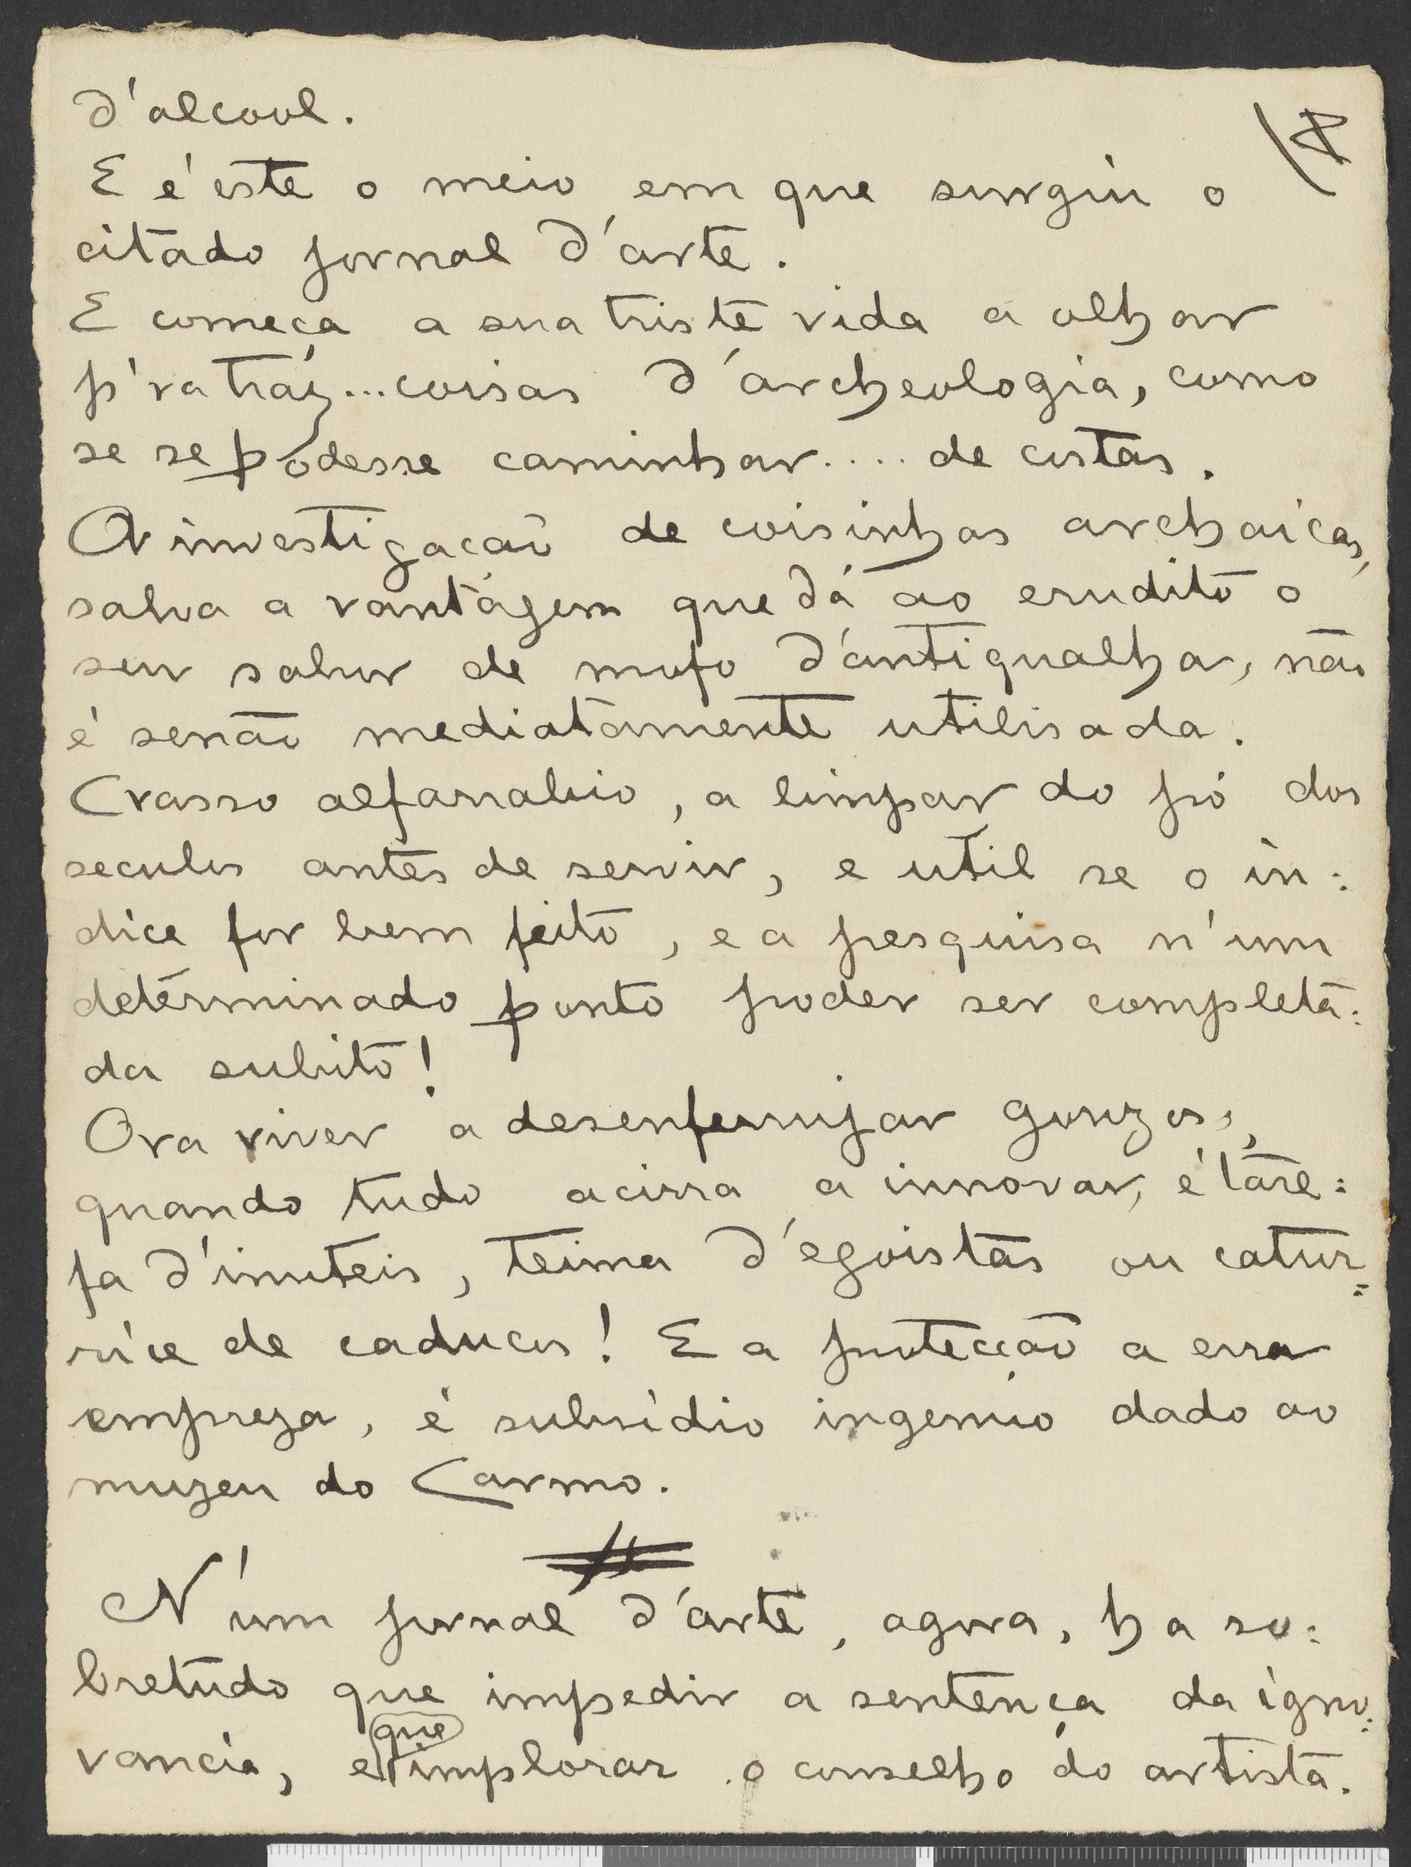 d'alcool.
E é este o meio em que surgiu o
citado jornal d'arte.
E começa a sua triste vida a olhar
p'ra traz... coisas d'archeologia, como
se se podesse caminhar.... de costas.
A investigação de coisinhas archaicas,
salva a vantagem que dá ao erudito o
seu sabor de mofo d'antigualha, não
é senão mediatamente utilisada.
Crasso alfarrabio, a limpar do pó dos
seculos antes de servir, e util se o in:
dice for bem feito, e a pesquisa n'um
determinado ponto poder ser completa:
da subito!
Ora viver a desenferrujar gonzos,
quando tudo acirra a innovar, é tare:
fa d'inuteis, teima d'egoistas ou catur:
rice de caducos! E a protecção a essa
empreza, é subsidio ingenuo dado ao
muzeu do Carmo.
N'um jornal d'arte, agora, ha so:
bretudo que impedir a sentença da igno:
rancia, e que implorar o conselho do artista.